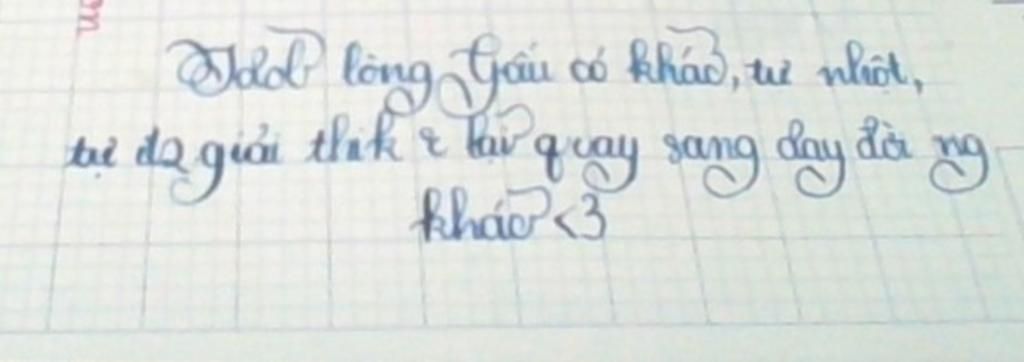 lông Gấu có khác, tự nhột,
tự đọ giải thik r lại quay sang dạy đời ng
khác <3